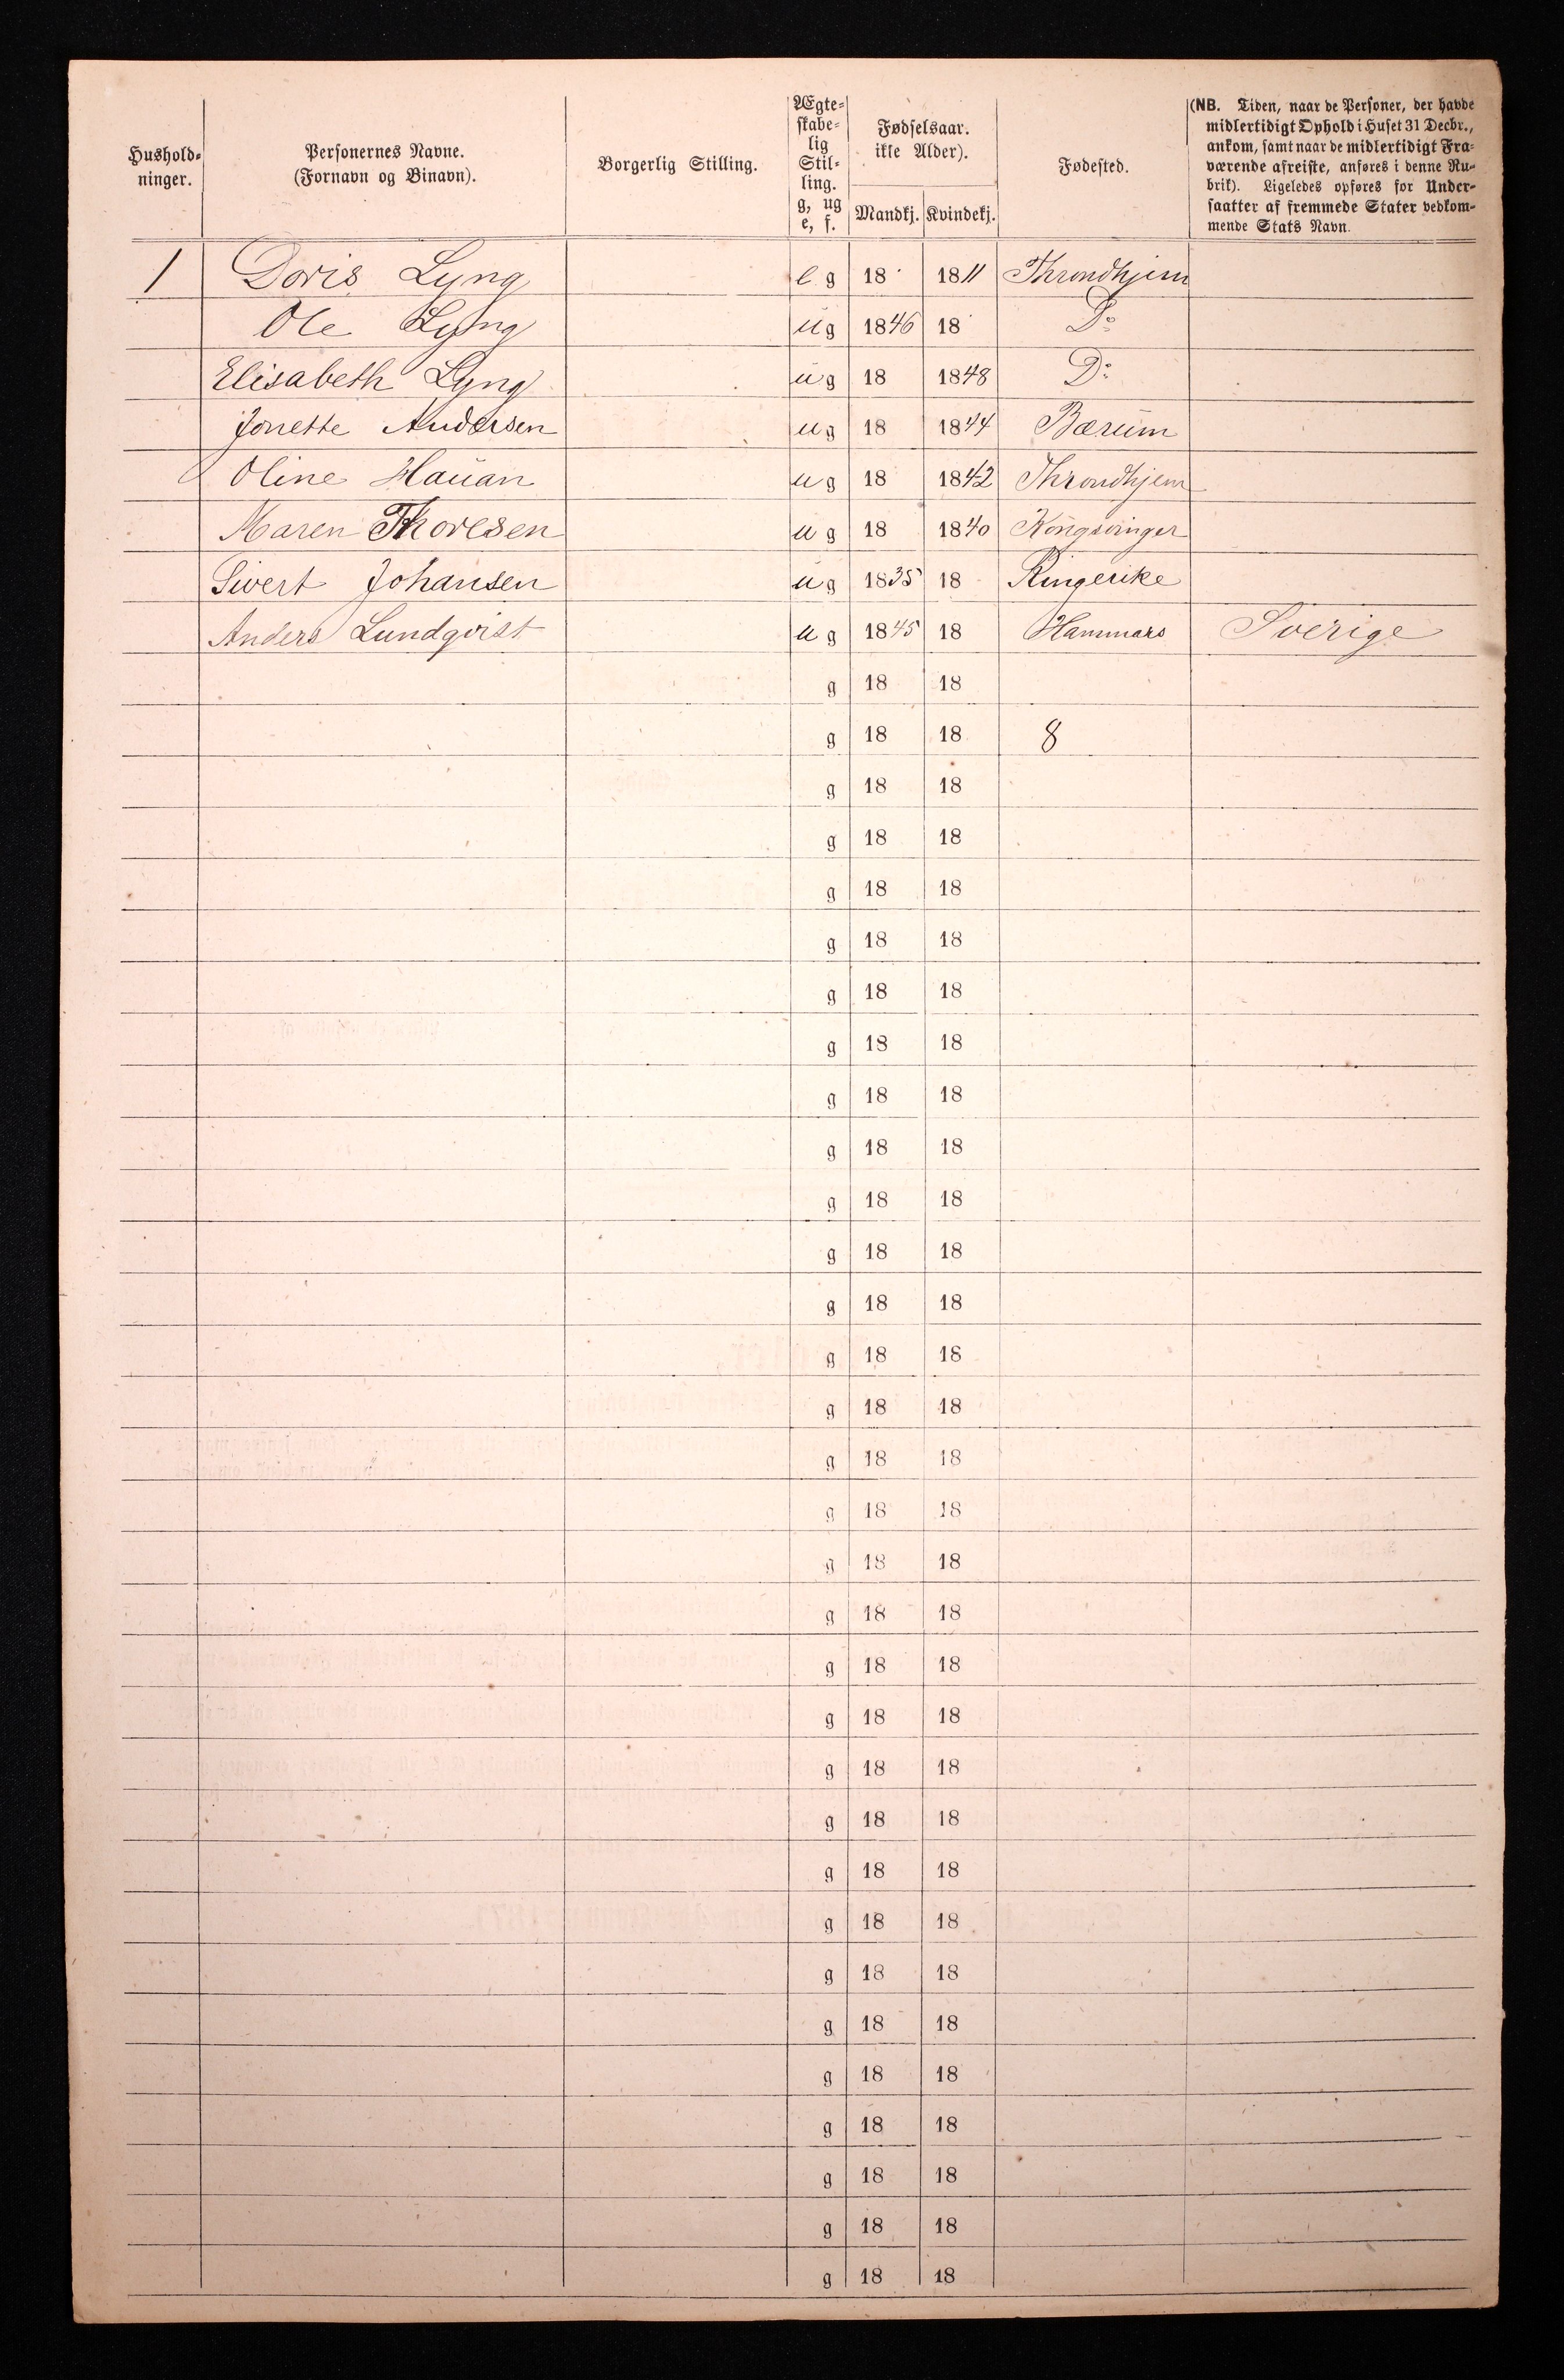 Hushold-
ninger.
Personernes Navne.
(Fornavn og Binavn).
Borgerlig Stilling.
Ægte-
skabe-
lig
Stil-
ling.
g, ug
e, f.
Fødselsaar.
ikke Alder).
Mandkj. Kvindekj.
Fødested.
(NB. Tiden, naar de Personer, der havde
midlertidigt Ophold i Huset 31 Decbr.,
ankom, samt naar de midlertidigt Fra-
værende afreiste, anføres i denne Ru-
brik). Ligeledes opføres for Under-
saatter af fremmede Stater vedkom-
mende Stats Navn.
1 Doris Lyng e g 18 1811 Throndhjem
Ole Lyng u g 1846 18 Do
Elisabeth Lyng u g 18 1848 Do
Jonette Andersen u g 18 1844 Bærum
Oline Hauan u g 18 1842 Throndhjem
Maren Thoresen u g 18 1840 Kongsvinger
Sivert Johansen u g 1835 18 Ringerike
Anders Lundqvist u g 1845 18 Hammars Sverige
g 18 18
g 18 18 8
g 18 18
g 18 18
g 18 18
g 18 18
g 18 18
g 18 18
g 18 18
g 18 18
g 18 18
g 18 18
g 18 18
g 18 18
g 18 18
g 18 18
g 18 18
g 18 18
g 18 18
g 18 18
g 18 18
g 18 18
g 18 18
g 18 18
g 18 18
g 18 18
g 18 18
g 18 18
g 18 18
g 18 18
g 18 18
g 18 18